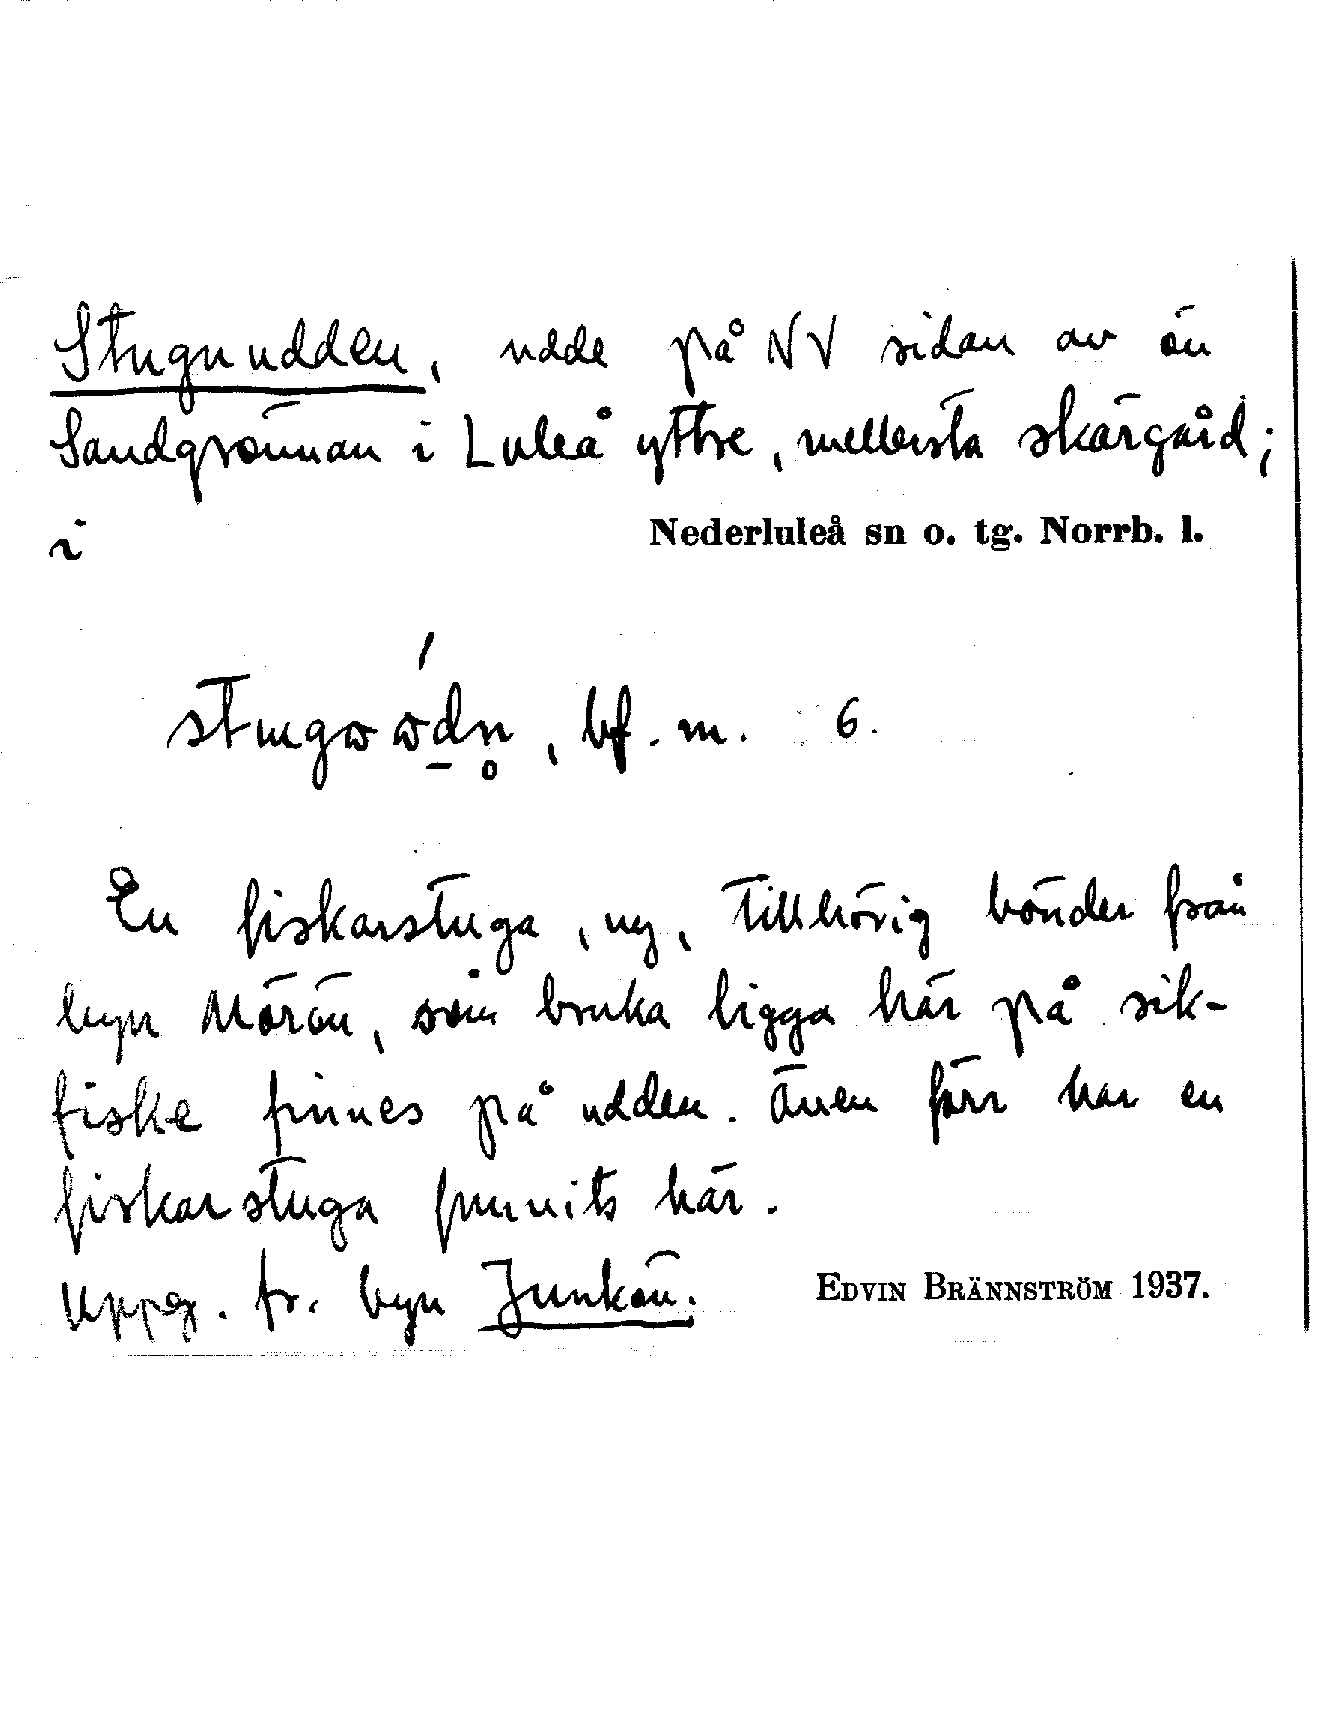 Stuguudden, udde på NV sidan av ön
Sandgrönnan i Luleå yttre, mellersta skärgård;
i Nederluleå sn o. tg. Norrb. l.
bf. m. 6.
En fiskarstuga, ny, tillhörig bönder från
byn Mörön, som bruka ligga här på sik-
fiske finnes på udden. Även förr har en
fiskarstuga funnits här.
Uppg. fr. byn Junkön. EDVIN BRÄNNSTRÖM 1937.